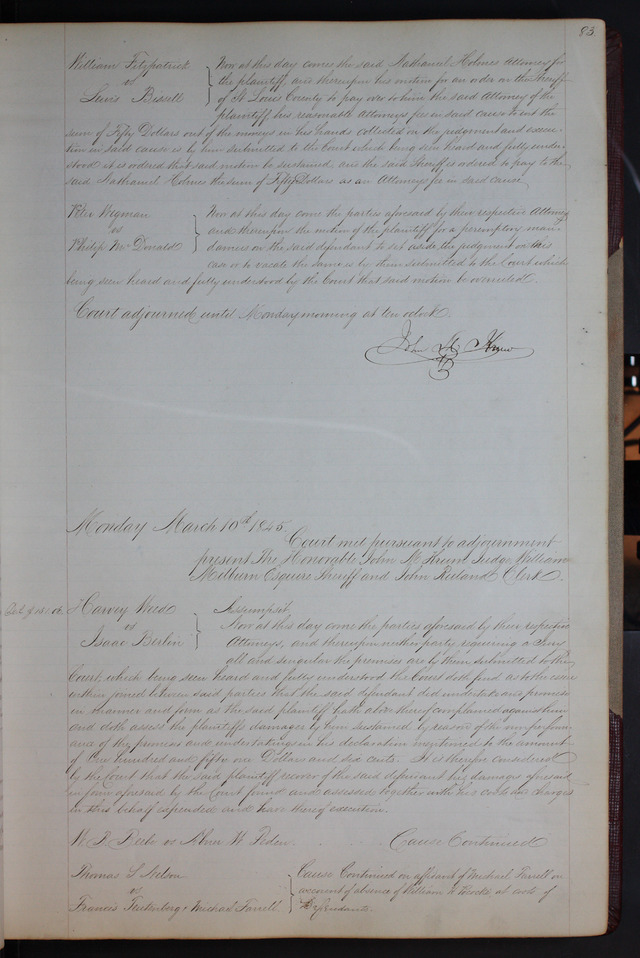 83
William Fitzpatrick
vs
Lewis Bissell
Now at this day comes the said Nathaniel Holmes Attorney for
the plaintiff, and thereupon his motion for an order on the Sheriff
of St Louis County to pay over to him the said Attorney of the
plaintiff his reasonable Attorneys fee in said cause to wit the
sum of Fifty Dollars out of the moneys in his hands collected on the judgment and execu-
tion in said cause is by him submitted to the Court which being seen heard and fully under-
stood it is ordered that said motion be sustained, and the said Sheriff is ordered to pay to the
said Nathaniel Holmes the sum of Fifty Dollars as an Attorneys fee in said cause
Peter Wigman
vs
Philip McDonald
Now at this day come the parties aforesaid by their respective Attorneys
and thereupon the motion of the plaintiff for a peremptory man-
damus on the said defendant to set aside the judgment in this
case or to vacate the same is by them submitted to the Court which
being seen heard and fully understood by the Court that said motion be overruled.
Court adjourned until Monday morning at ten oclock.
John M. Krum
Monday March 10th 1845.
Court met pursuant to adjournment
present The Honorable John M. Krum Judge William
Milburn Esquire Sheriff and John Ruland Clerk.
Harvey Weed
vs
Isaac Berlin
Assumpsit,
Now at this day come the parties aforesaid by their respective
Attorneys, and thereupon neither party requiring a Jury
all and singular the premises are by them submitted to the
Court, which being seen heard and fully understood the Court doth find as to the issue
within joined between said parties that the said defendant did undertake and promise
in manner and form as the said plaintiff hath above thereof complained against him
and doth assess the plaintiffs damages by him sustained by reason of the nonperform-
ance of the promises and undertakings in his declaration mentioned to the amount
of One hundred and fifty one Dollars and six cents. It is therefore considered
by the Court that the said plaintiff recover of the said defendant his damages aforesaid
in form aforesaid by the Court found and assessed together with his costs and charges
in this behalf expended and have thereof execution.
W. P. Beebe vs Abner W. Peden. Cause Continued
Thomas S. Nelson
vs
Francis & Michael Farrell
Cause Continued on affidavit of Michael Farrell on
account of absence of William at costs of
Defendants.